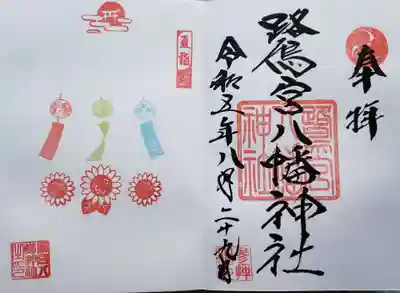 奉拝
鷺宮八幡神社
令和五年八月二十九日
夏詣